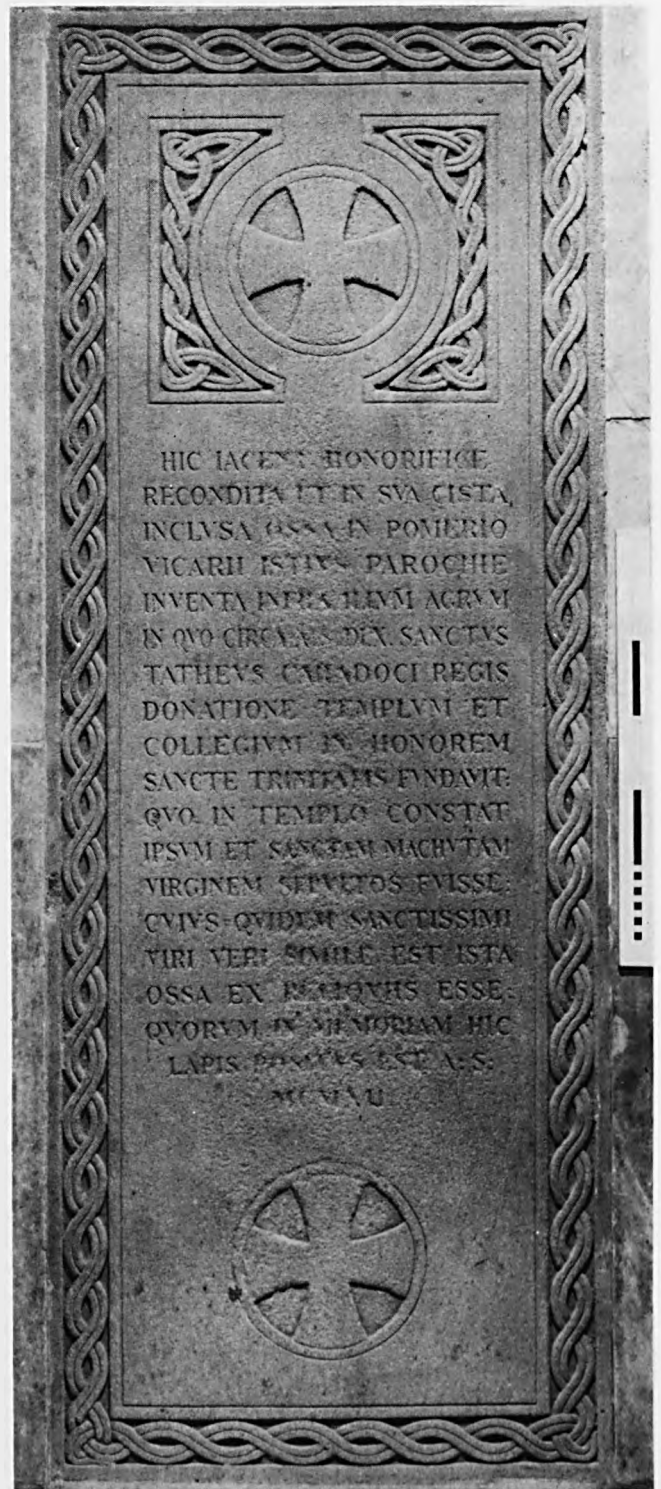 HIC IACENT HONORIFICE
RECONDITA ET IN SVA CISTA
INCLVSA OSSA IN POMERIO
VICARII ISTIVS PAROCHIE
INVENTA INFRA ILLVM AGRVM
IN QVO SANCTVS
TATHEVS CARADOCI REGIS
DONATIONE TEMPLVM ET
COLLEGIVM IN HONOREM
SANCTE TRINITATIS FVNDAVIT:
QVO IN TEMPLO CONSTAT
IPSVM ET SANCTAM MACHVTAM
VIRGINEM SEPVLTOS FVISSE:
CVIVS QVIDEM SANCTISSIMI
VIRI VERI SIMILE EST ISTA
OSSA EX RELIQVIIS ESSE:
QVORVM IN MEMORIAM HIC
LAPIS POSITVS EST A: S: